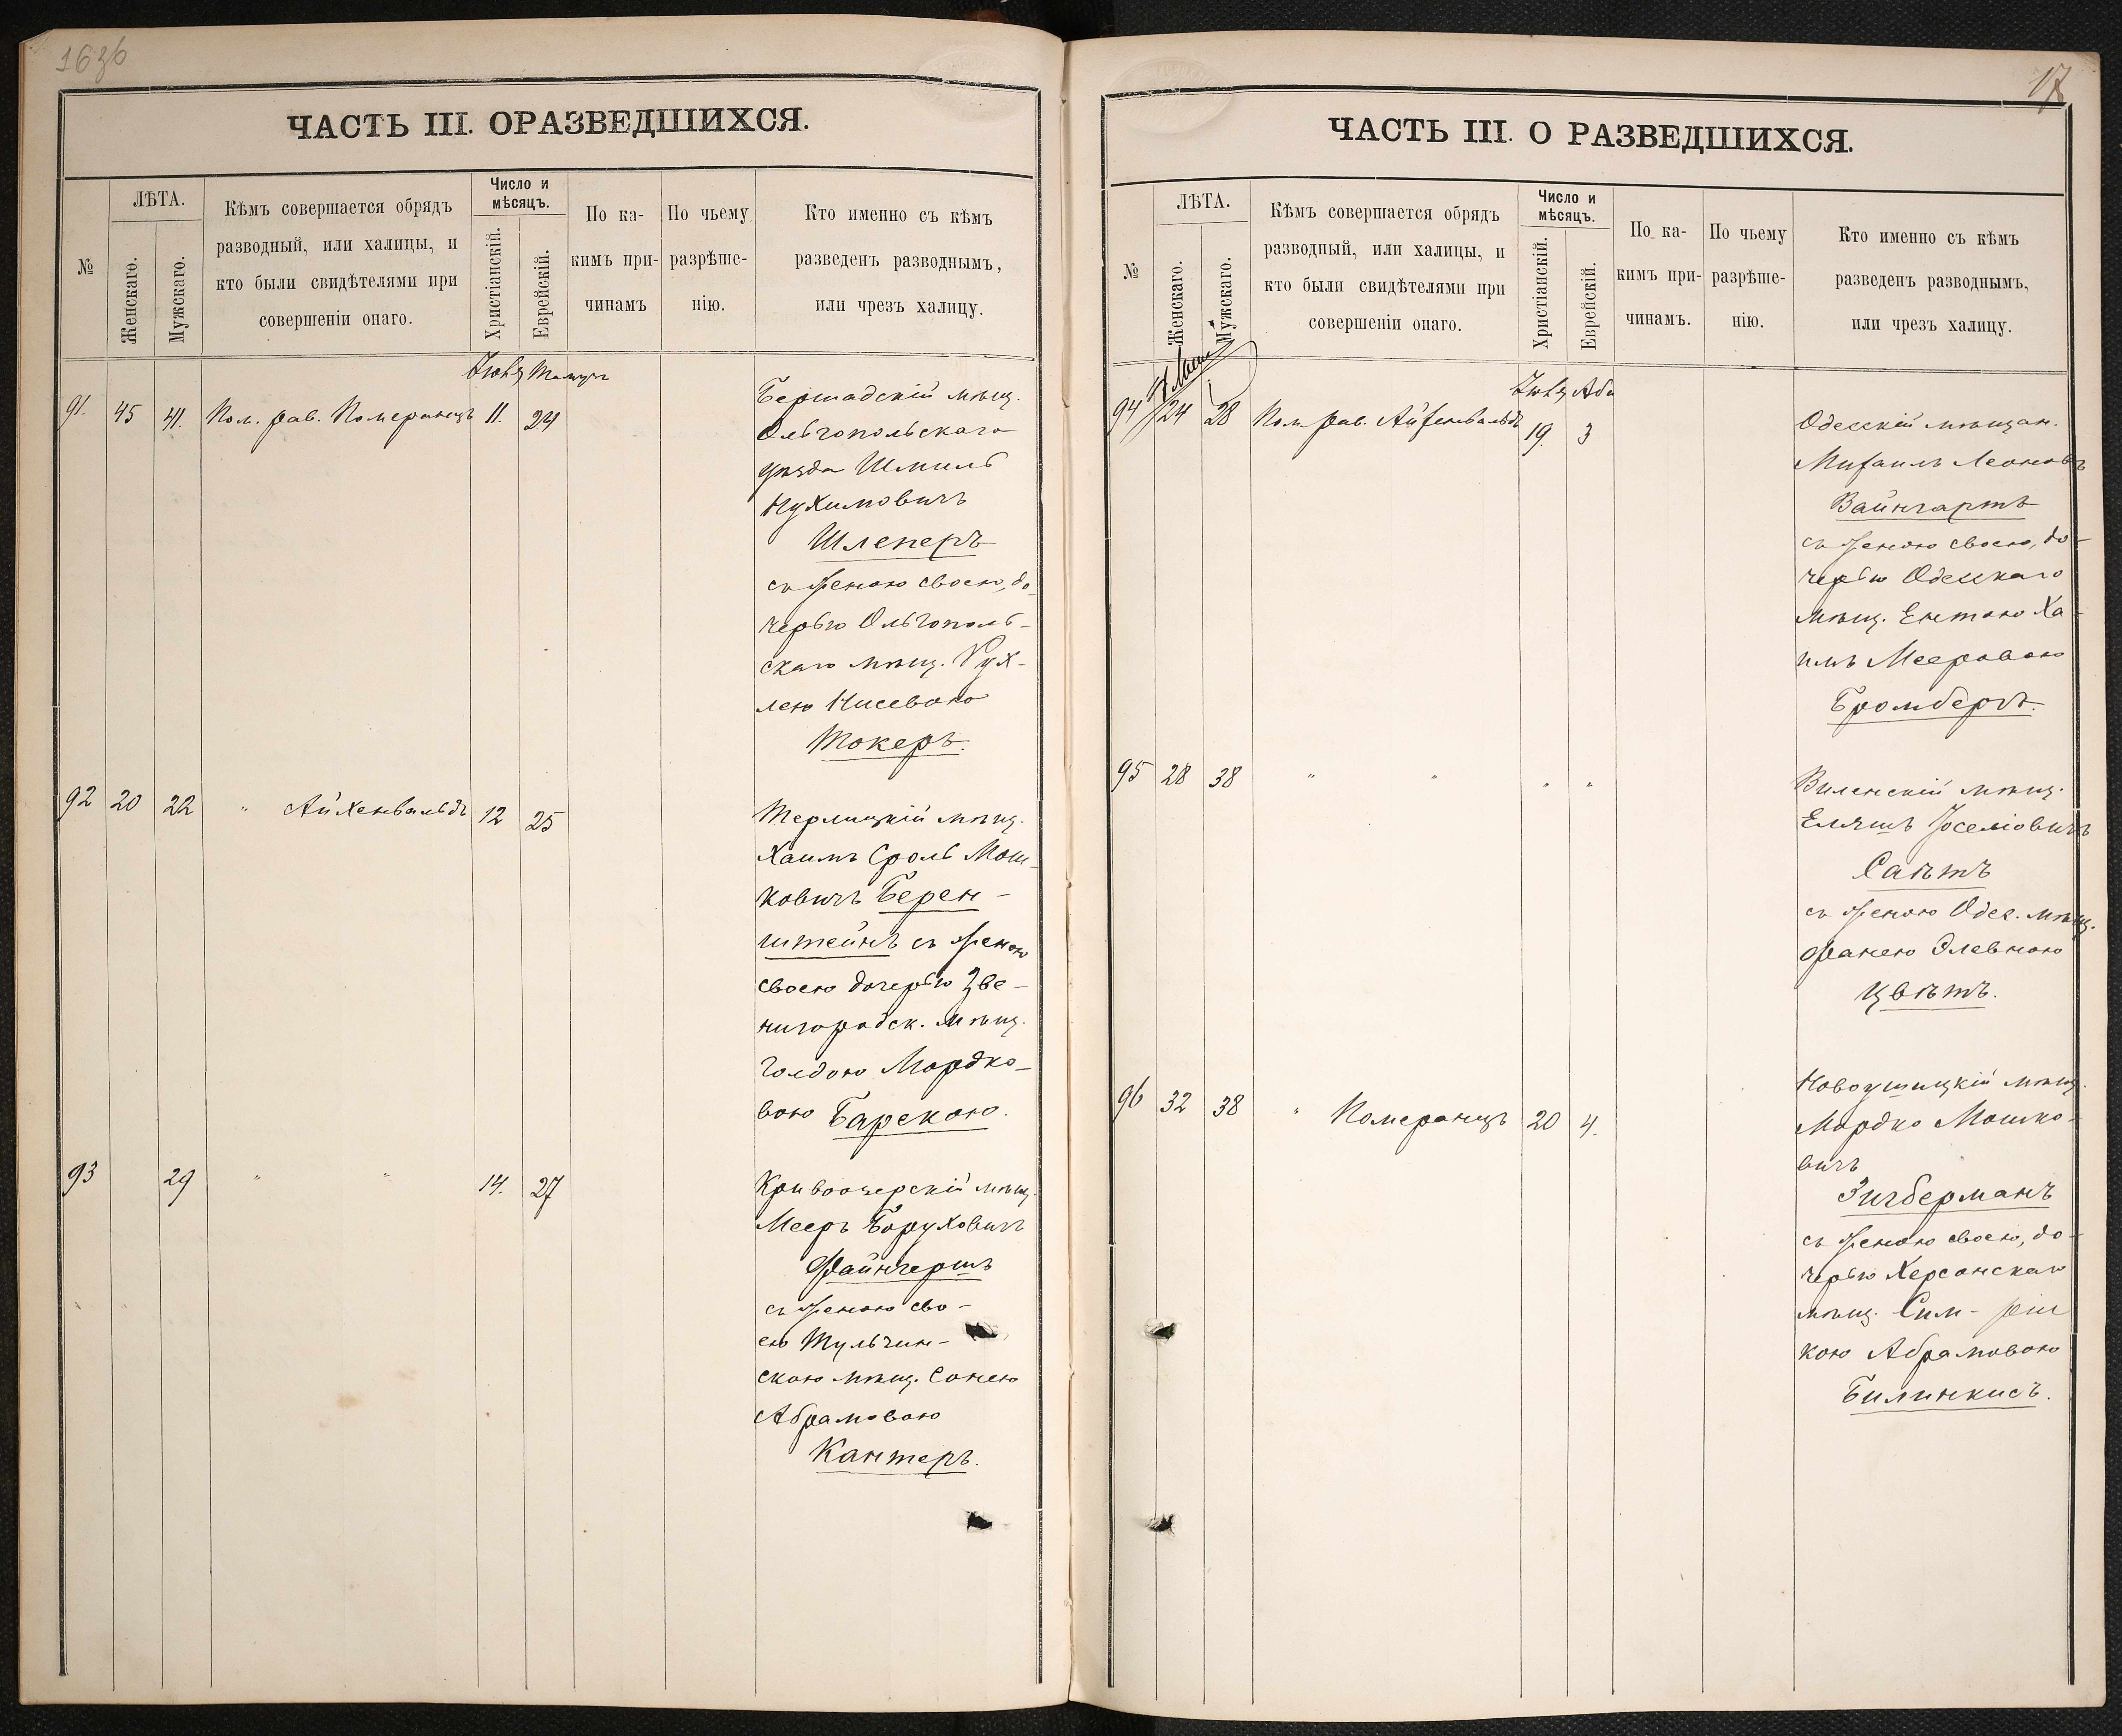 1636
ЧАСТЬ III. О РАЗВЕДШИХСЯ.
№
ЛѢТА.
Женскаго.
Мужскаго.
Кѣмъ совершается обрядъ
разводный, или халицы, и
кто были свидѣтелями при
совершеніи онаго.
Число и
мѣсяцъ.
Христіанскій.
Еврейскій.
По ка-
кимъ при-
чинамъ
По чьему
разрѣше-
нію.
Кто именно съ кѣмъ
разведенъ разводнымъ,
или чрезъ халицу.
91. 45 41. Пом. рав. Померанцъ 11. 24
Бершадскій мѣщ.
Ольгопольскаго
уѣзда Шмиль
Нухимовичъ
Шлеперъ
съ женою своею, до-
черью Ольгополь-
скаго мѣщ. Рух-
лею Нисевою
Токеръ.
92 20 22 " Айхенвальдъ 12 25
Терлицкій мѣщ.
Хаимъ Сроль Мош-
ковичъ Берен-
штейнъ съ женою
своею дочерью Зве-
нигородск. мѣщ.
Голдою Мордко-
вою Барскою.
93 29 " " 14. 27
Кривоозерскій мѣщ.
Мееръ Боруховичъ
Файнгершъ
съ женою сво-
ею Тульчин-
скою мѣщ. Сонею
Абрамовою
Кантеръ.
17
ЧАСТЬ III. О РАЗВЕДШИХСЯ.
№
ЛѢТА.
Женскаго.
Мужскаго.
Кѣмъ совершается обрядъ
разводный, или халицы, и
кто были свидѣтелями при
совершеніи онаго.
Число и
мѣсяцъ.
Христіанскій.
Еврейскій.
По ка-
кимъ при-
чинамъ.
По чьему
разрѣше-
нію.
Кто именно съ кѣмъ
разведенъ разводнымъ,
или чрезъ халицу.
Аба
94 24 28 Пом. рав. Айхенвальдъ 19. 3
Одесскій мѣщан.
Михаилъ Леоновъ
Вайнгартъ
съ женою своею, до-
черью Одесскаго
мѣщ. Ентою Ха-
имъ Мееровою
Бромбергъ.
95 28 38 " " " "
Виленскій мѣщ.
Еляшъ Іоселіовичъ
Сагътъ
съ женою Одес. мѣщ.
Фанею Элевною
Цвѣтъ.
96 32 38 " Померанцъ 20 4.
Новоушицкій мѣщ.
Мордко Мошко-
вичъ
Зигберманъ
съ женою своею, до-
черью Херсонскаго
мѣщ. Сим-
кою Абрамовою
Билинкисъ.